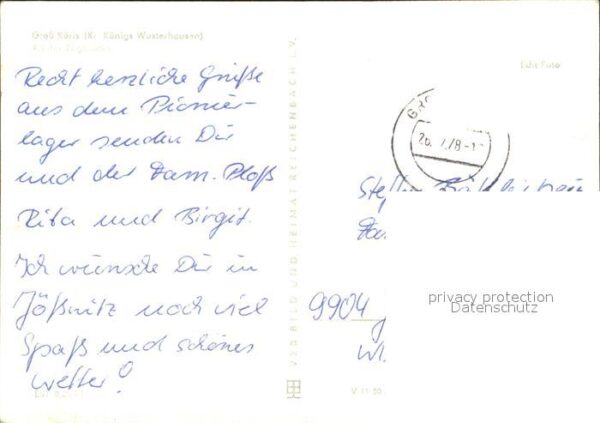 Groß Köris (Kr. Königs Wusterhausen)
Recht herzliche Grüße
aus dem Pionier-
lager senden Dir
und der Fam. Ploß
Rita und Birgit.
Ich wünsche Dir in
Jößnitz noch viel
Spaß und schönes
Wetter!
VEB BILD UND HEIMAT REICHENBACH I. V.
Echt Foto
26. 7.78-1
9904
privacy protection
Datenschutz
V 11 50